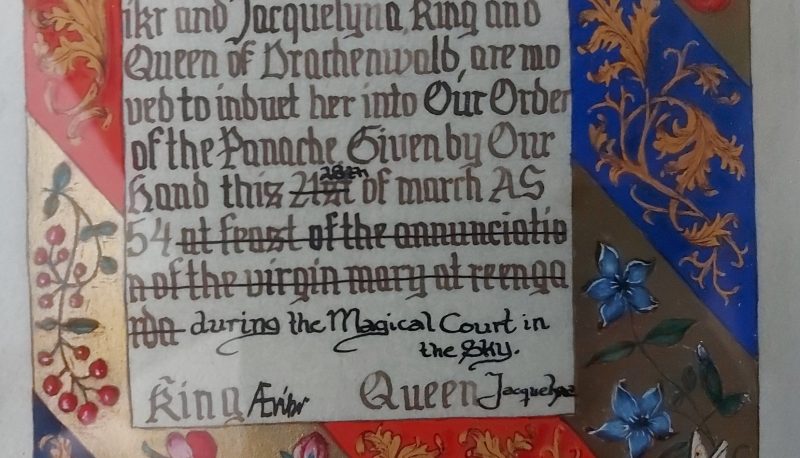 ikr and Jacquelyna, King and
Queen of Drachenwald, are mo
ved to induct her into Our Order
of the Panache Given by Our
hand this 21st 28th of march AS
54 at feast of the annunciatio
n of the virgin mary at reenga
rda during the Magical Court in
the Sky.
King Ærikr Queen Jacquelyna